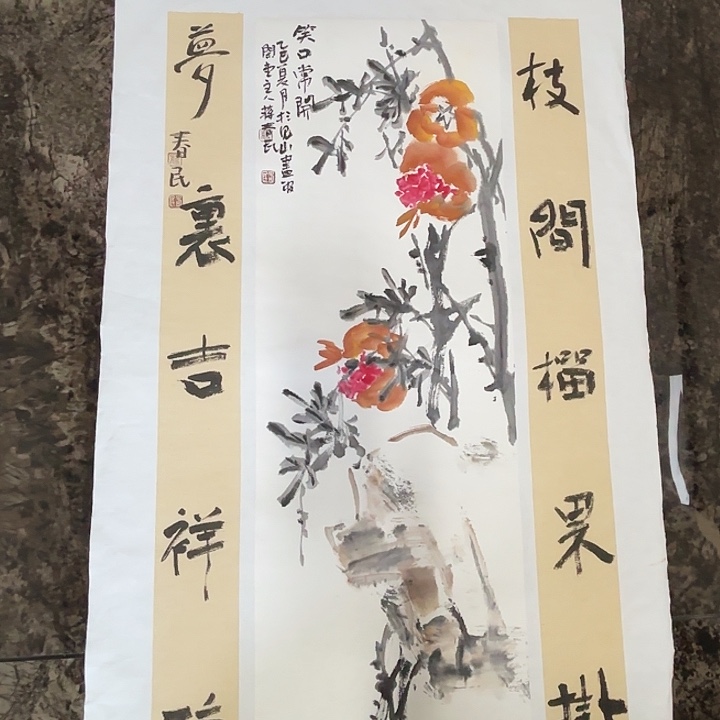 枝間榴果掛
笑口常開
乙巳夏月於見山畫泊
閣堂主人蔣春民
夢裏吉祥
春民